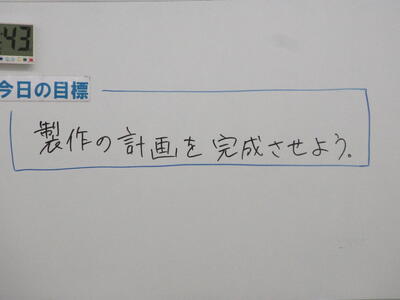 :43
今日の目標
製作の計画を完成させよう。